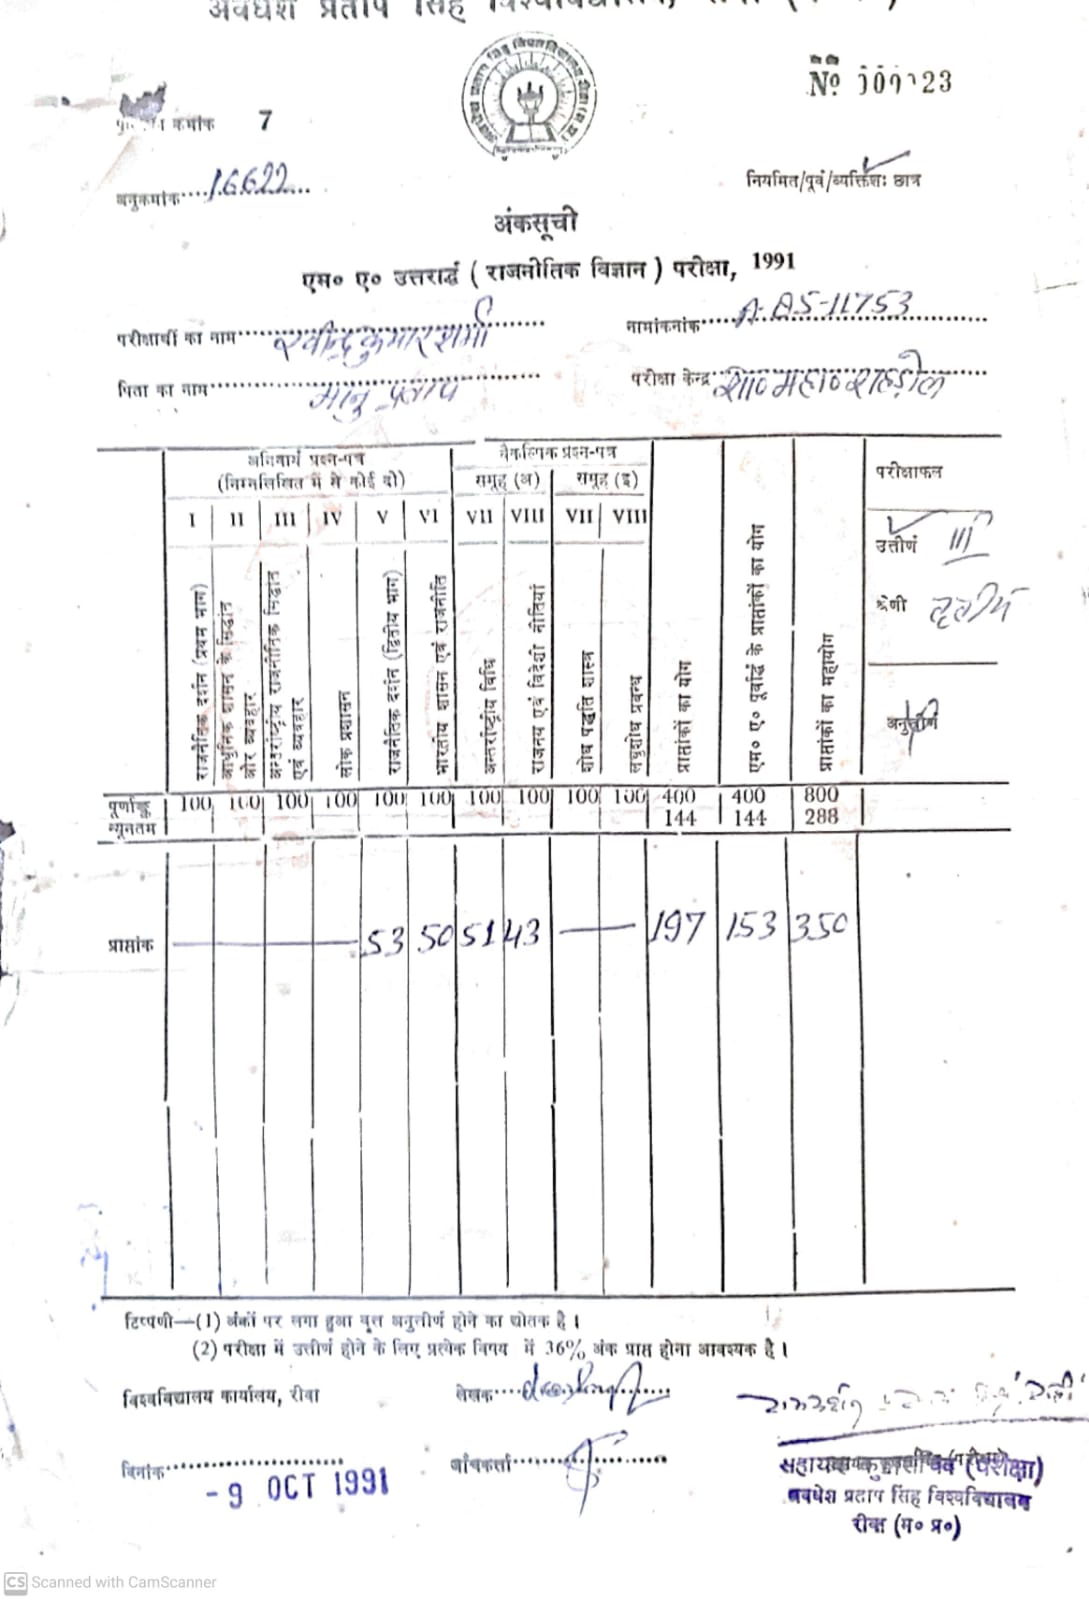 अवधेश प्रताप सिंह विश्वविद्यालय,
No
क्रमांक 7
अनुक्रमांक....16622...
नियमित/पूर्व/व्यक्तिशः छात्र
अंकसूची
एम० ए० उत्तरार्द्ध ( राजनीतिक विज्ञान ) परीक्षा, 1991
परीक्षार्थी का नाम रवीन्द्र कुमार शर्मा
नामांकनांक A-85-11753
पिता का नाम भानु प्रताप
परीक्षा केन्द्र शा० महा० शहडोल
अनिवार्य प्रश्न-पत्र
(निम्नलिखित में से कोई दो)
वैकल्पिक प्रश्न-पत्र
समूह (अ) समूह (इ)
परीक्षाफल
I II III IV V VI VII VIII VII VIII
उत्तीर्ण III
श्रेणी तृतीय
अनुत्तीर्ण
राजनैतिक दर्शन (प्रथम भाग)
आधुनिक शासन के सिद्धांत
और व्यवहार
अन्तर्राष्ट्रीय राजनीतिक सिद्धांत
एवं व्यवहार
लोक प्रशासन
राजनैतिक दर्शन (द्वितीय भाग)
भारतीय शासन एवं राजनीति
अन्तर्राष्ट्रीय विधि
राजनय एवं विदेशी नीतियां
शोध पद्धति शास्त्र
लघुशोध प्रबन्ध
प्राप्तांकों का योग
एम० ए० पूर्वार्द्ध के प्राप्तांकों का योग
प्राप्तांकों का महायोग
पूर्णाङ्क 100 100 100 100 100 100 100 100 100 100 400 400 800
न्यूनतम 144 144 288
प्राप्तांक 53 50 51 43 197 153 350
टिप्पणी—(1) अंकों पर लगा हुआ वृत्त अनुत्तीर्ण होने का द्योतक है।
(2) परीक्षा में उत्तीर्ण होने के लिए प्रत्येक विषय में 36% अंक प्राप्त होना आवश्यक है।
विश्वविद्यालय कार्यालय, रीवा
लेखक
दिनांक
-9 OCT 1991
जाँचकर्ता
सहायक कुलसचिव (परीक्षा)
अवधेश प्रताप सिंह विश्वविद्यालय
रीवा (म० प्र०)
CS Scanned with CamScanner